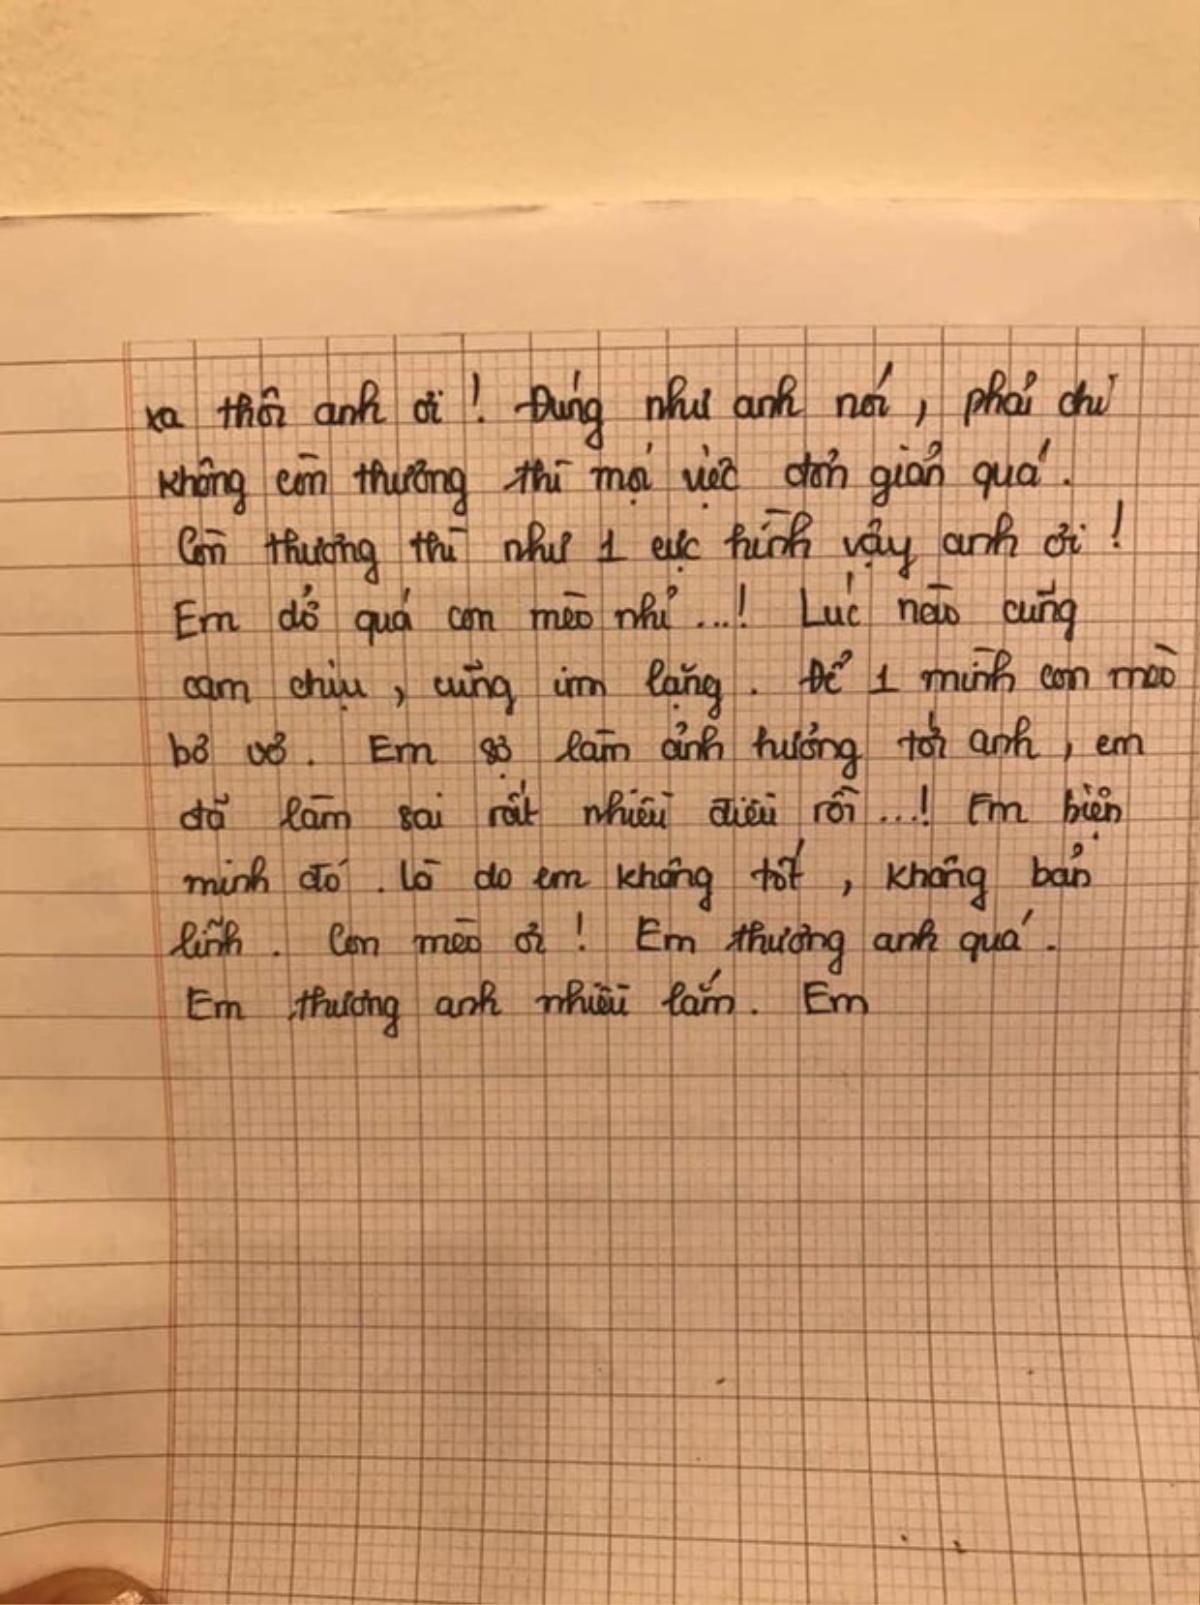 xa thôi anh ơi ! Đúng như anh nói , phải chi
không còn thương thì mọi việc đơn giản quá .
Còn thương thì như 1 cực hình vậy anh ơi !
Em dở quá con mèo nhỉ ...! Lúc nào cũng
cam chịu , cũng im lặng . Để 1 mình con mèo
bơ vơ . Em sợ làm ảnh hưởng tới anh , em
đã làm sai rất nhiều điều rồi ...! Em biện
minh đó . là do em không tốt , không bản
lĩnh . Con mèo ơi ! Em thương anh quá .
Em thương anh nhiều lắm . Em